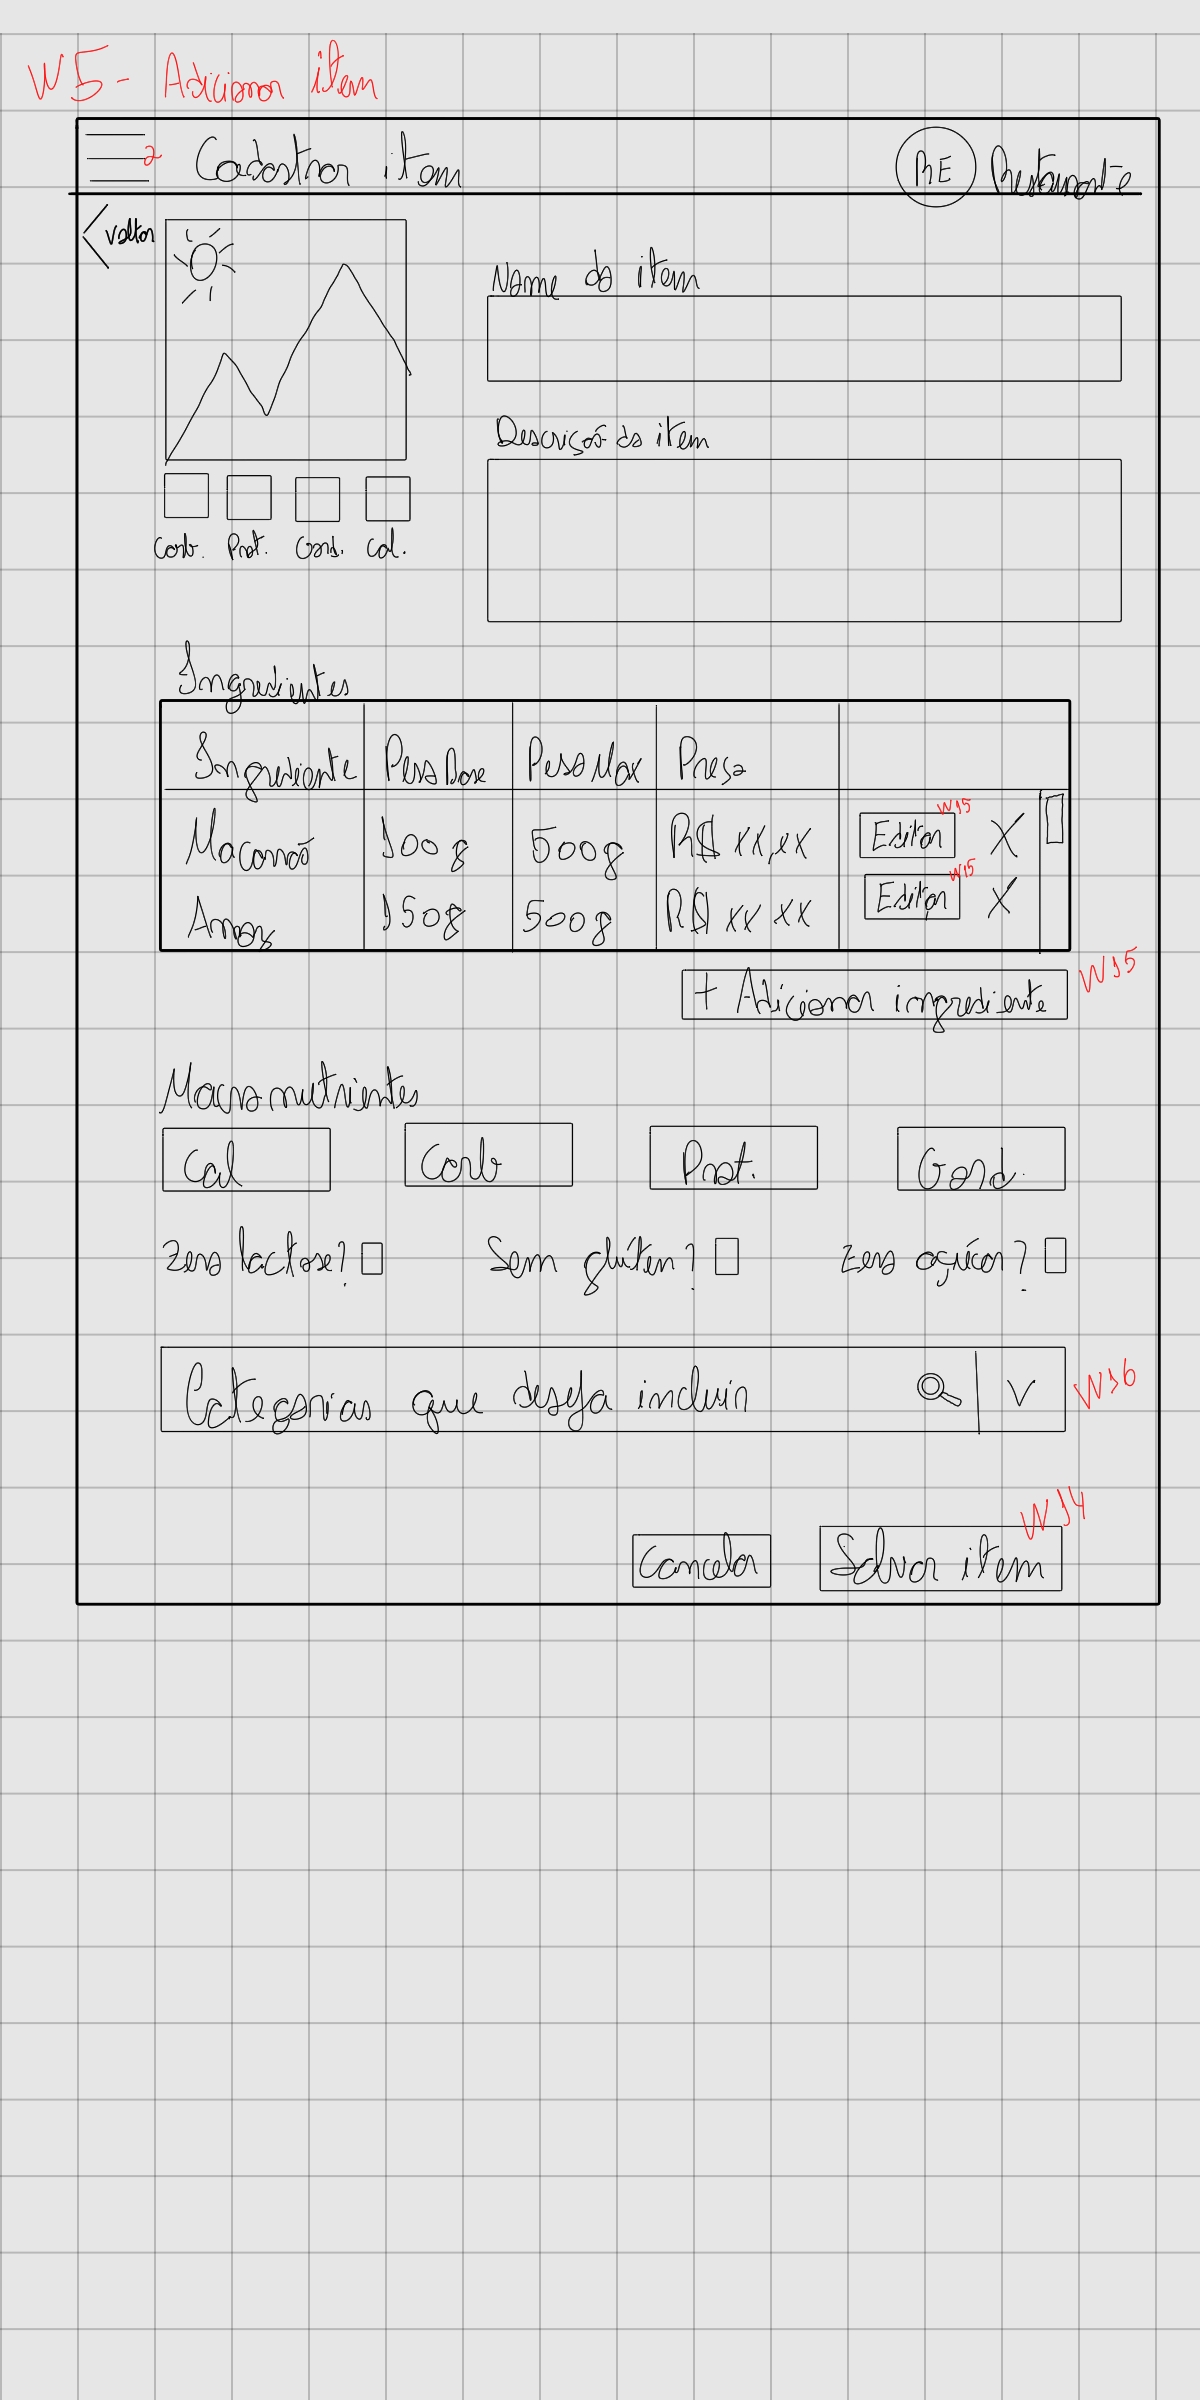 W5 - Adicionar item
2 Cadastrar item RE Restaurante
Voltar
Nome do item
Descrição do item
Carb. Prot. Gord. Cal.
Ingredientes
Ingrediente Peso Base Peso Max Preço
Macarrão 100g 500g R$ xx,xx Editar W15 X
Arroz 150g 500g R$ xx xx Editar W15 X
+ Adicionar ingrediente W15
Macronutrientes
Cal Carb Prot. Gord.
Zero lactose? Sem glúten? Zero açúcar?
Categorias que deseja incluir V W16
Cancelar Salvar item W14